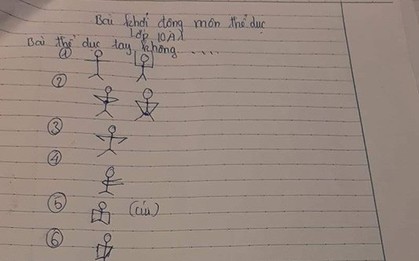 Bài khởi động môn thể dục
lớp 10A1
Bài thể dục tay không ....
①
②
③
④
⑤ (cúi)
⑥